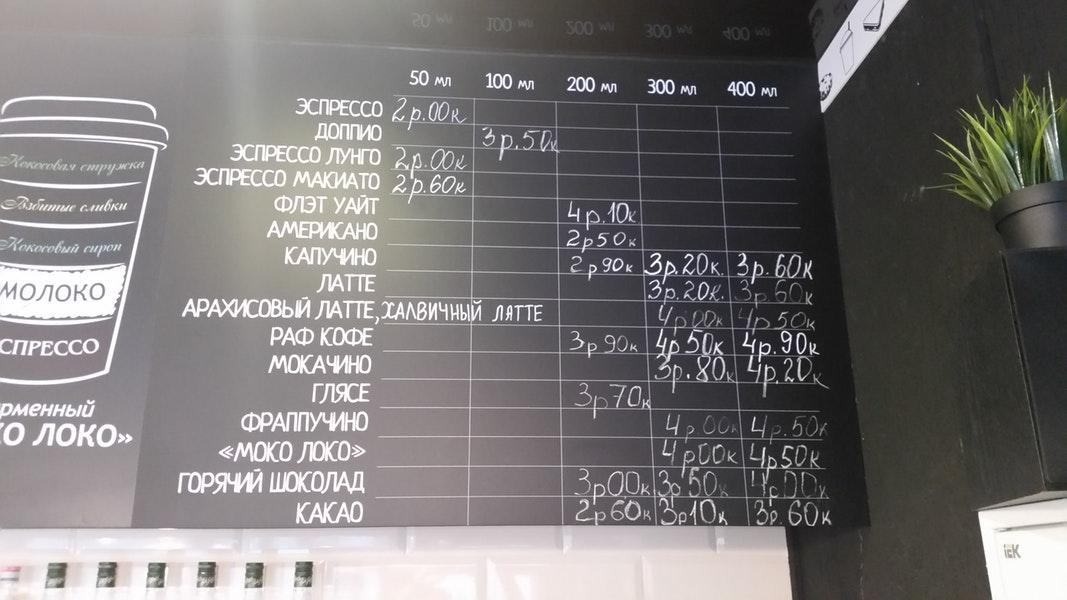 50 мл 100 мл 200 мл 300 мл 400 мл
ЭСПРЕССО 2р.00к
ДОППИО 3р.50к
ЭСПРЕССО ЛУНГО 2р.00к
ЭСПРЕССО МАКИАТО 2р.60к
ФЛЭТ УАЙТ 4р.10к
АМЕРИКАНО 2р50к
КАПУЧИНО 2р90к 3р.20к. 3р.60к
ЛАТТЕ 3р.20к. 3р.60к
АРАХИСОВЫЙ ЛАТТЕ, ХАЛВИЧНЫЙ ЛАТТЕ 4р00к 4р50к
РАФ КОФЕ 3р90к 4р50к 4р.90к
МОКАЧИНО 3р.80к 4р.20к
ГЛЯСЕ 3р70к
ФРАППУЧИНО 4р.00к 4р.50к
«МОКО ЛОКО» 4р00к 4р50к
ГОРЯЧИЙ ШОКОЛАД 3р00к 3р50к 4р00к
КАКАО 2р60к 3р10к 3р.60к
Кокосовая стружка
Взбитые сливки
Кокосовый сироп
МОЛОКО
СПРЕССО
рменный
КО ЛОКО»
IEK